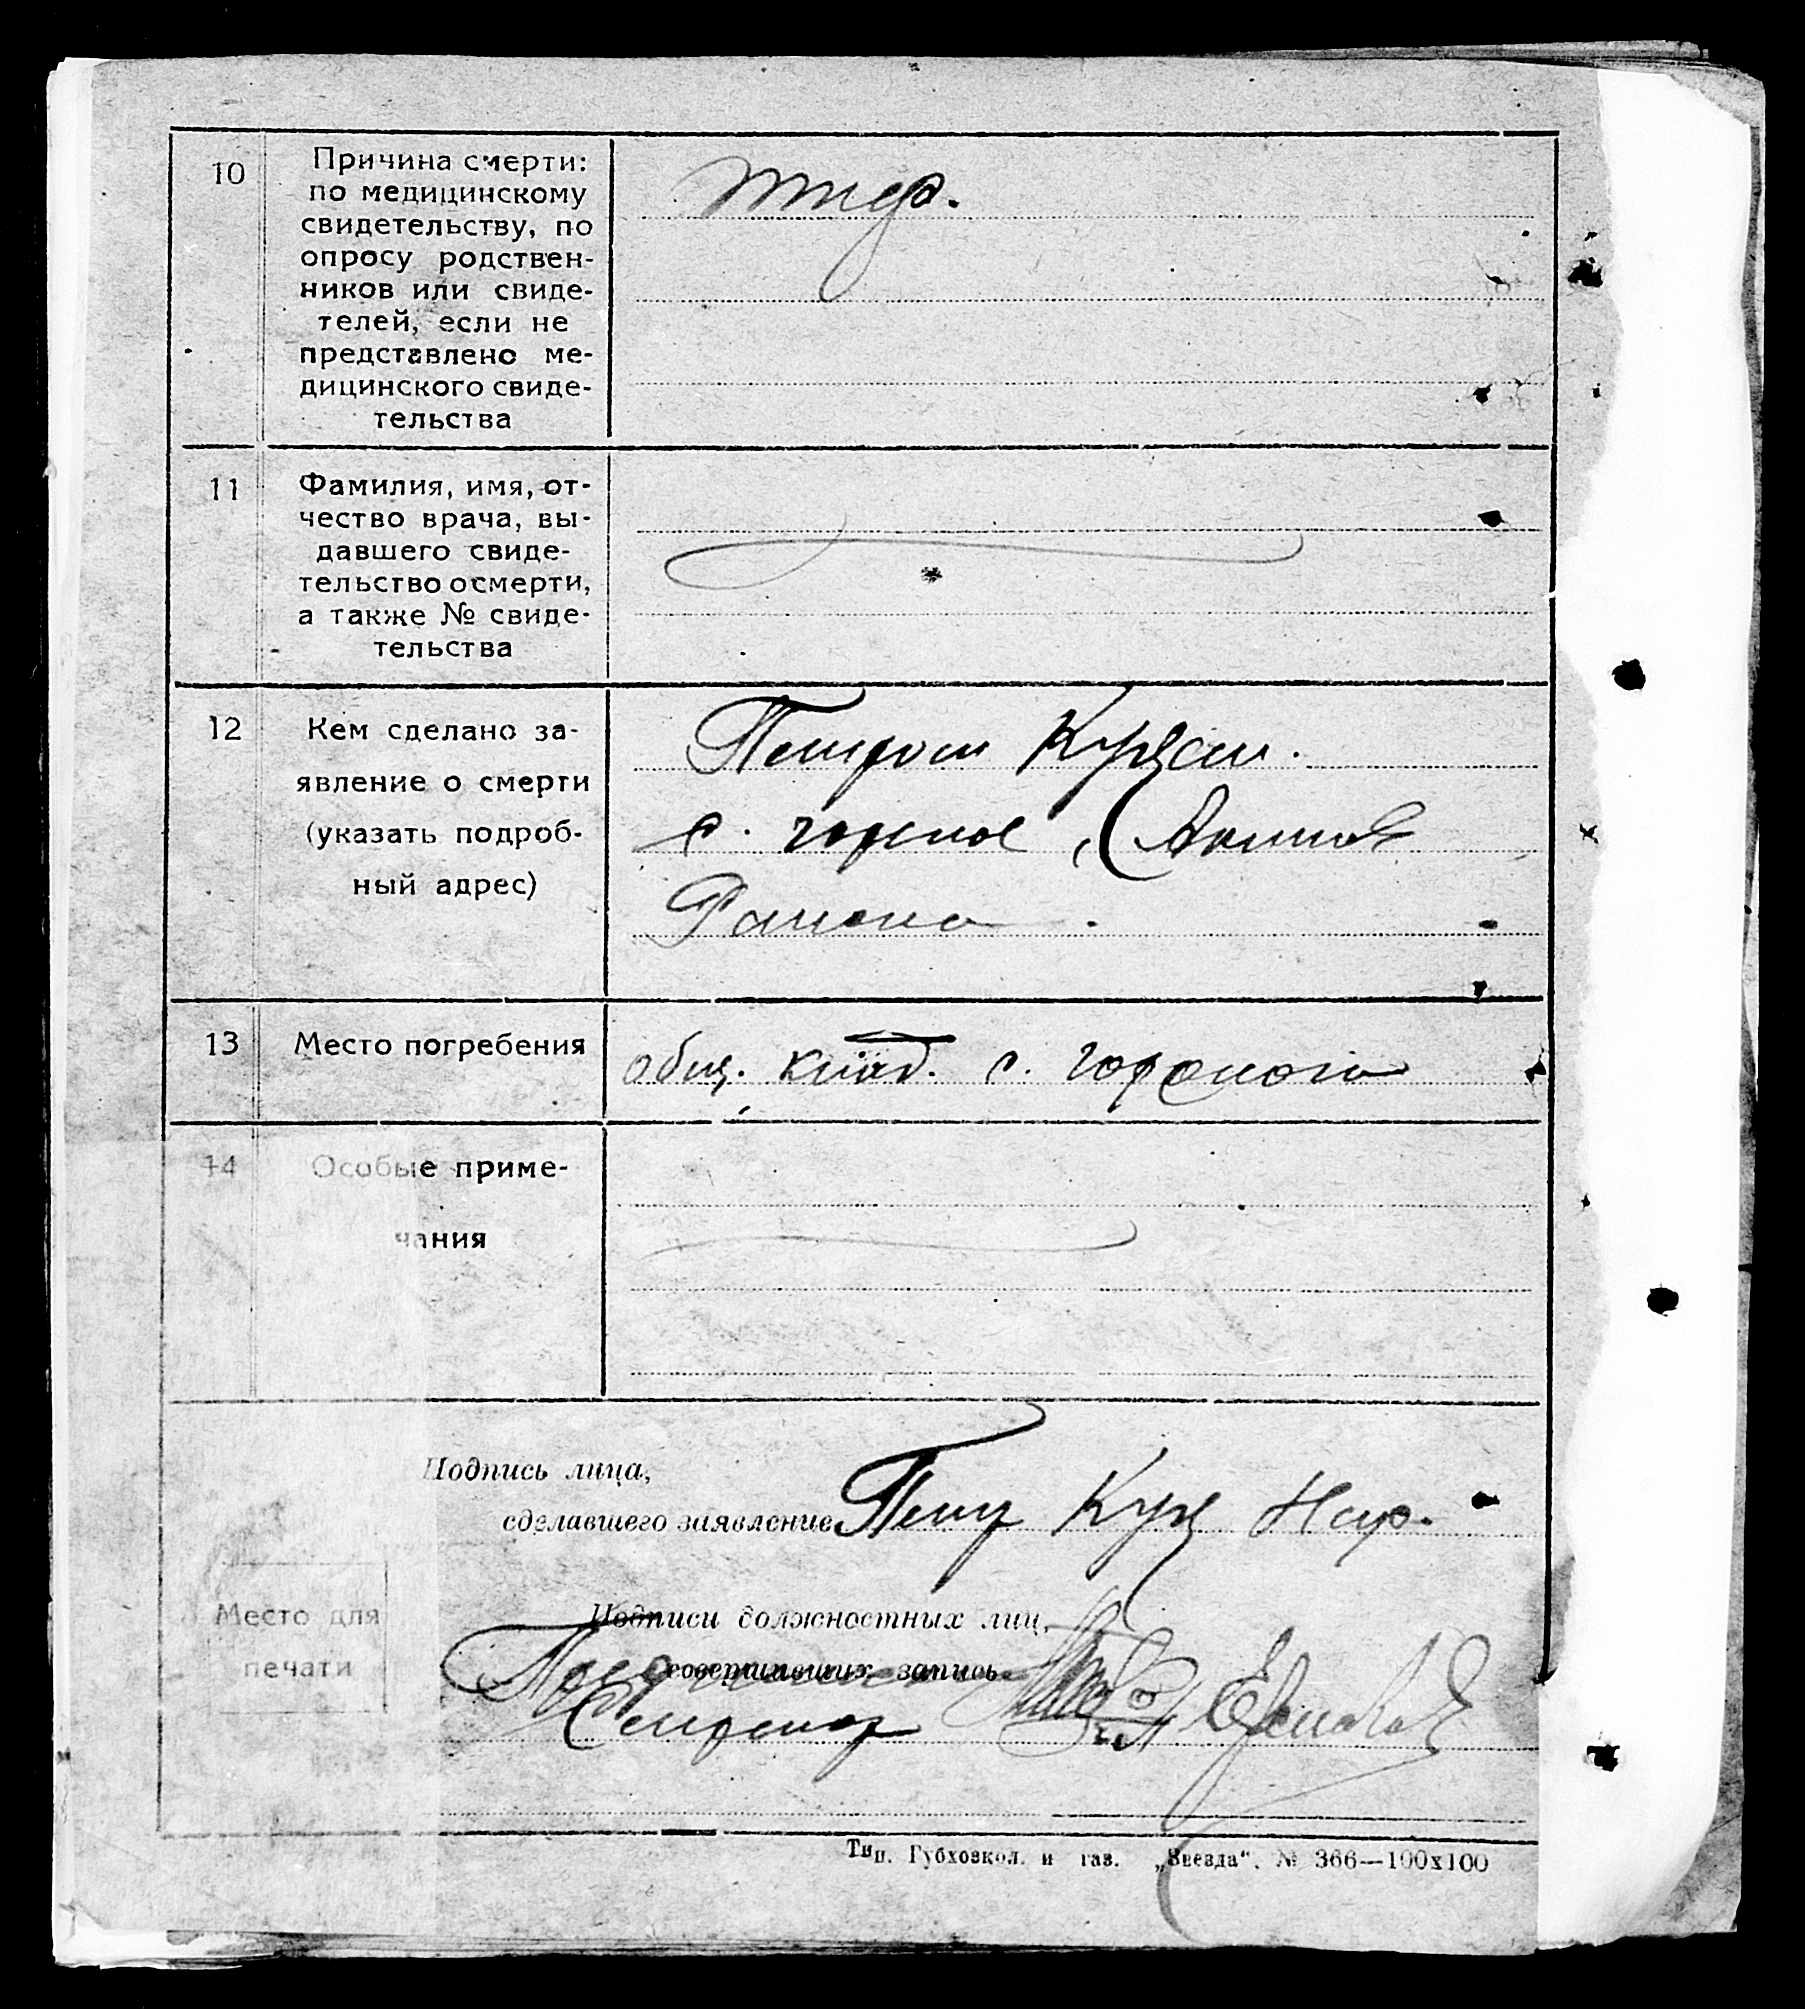 10
Причина смерти:
по медицинскому
свидетельству, по
опросу родствен-
ников или свиде-
телей, если не
представлено ме-
дицинского свиде-
тельства
тиф.
11
Фамилия, имя, от-
чество врача, вы-
давшего свиде-
тельство о смерти,
а также № свиде-
тельства
12
Кем сделано за-
явление о смерти
(указать подроб-
ный адрес)
Петром
с. горское,
Района
13
Место погребения
общ. клад. с.
14
Особые приме-
чания
Подпись лица,
сделавшего заявление
Петр
Место для
печати
Подписи должностных лиц,
совершивших запись
Секретарь
Тип. Губхозкол. и газ. „Звезда“. № 366—100х100